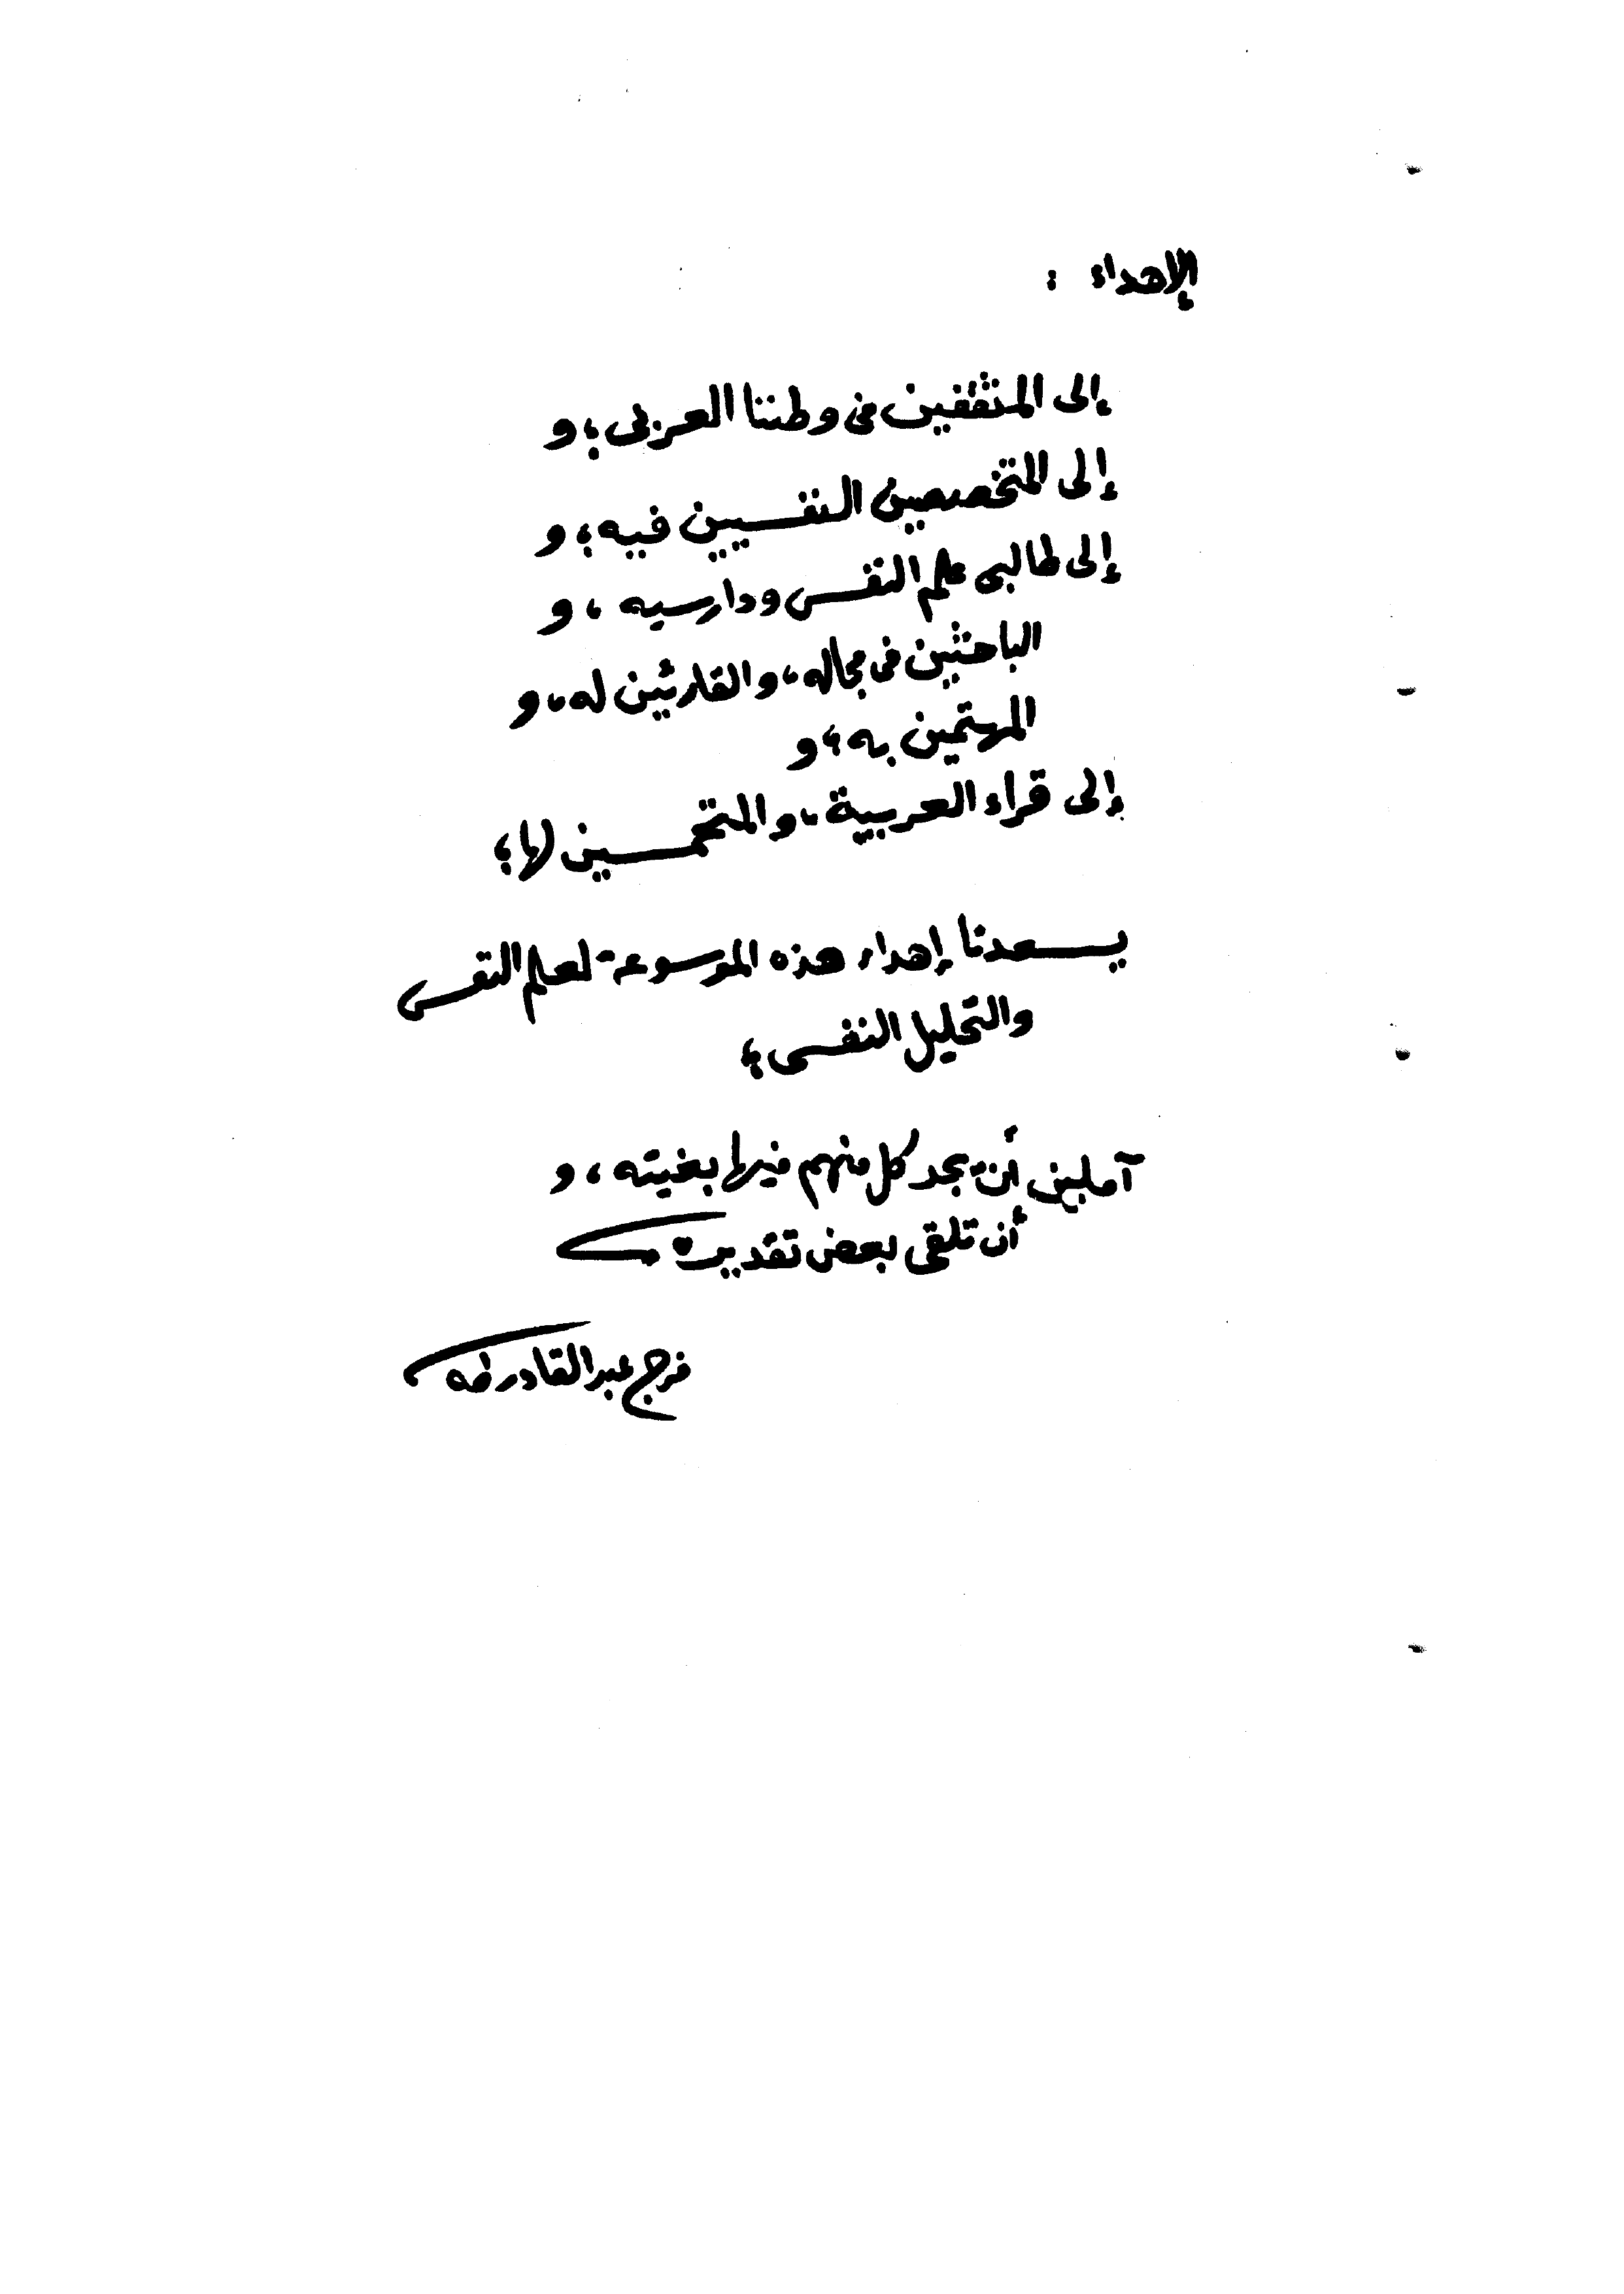 الإهداء :
إلى المثقفين فى وطننا العربى ؛ و
إلى المتخصصين النفسيين فيه ؛ و
إلى طالبى علم النفس ودارسيه ، و
الباحثين فى مجاله ، والقارئين له ، و
المهتمين به ؛ و
إلى قراء العربية ، والمتحمسين لها ؛
يسعدنا إهداء هذه الموسوعة لعلم النفس
والتحليل النفسى ؛
آملين أن يجد كل منهم فيها بغيته ، و
أن تلقى بعض تقديره
فرج عبد القادر طه